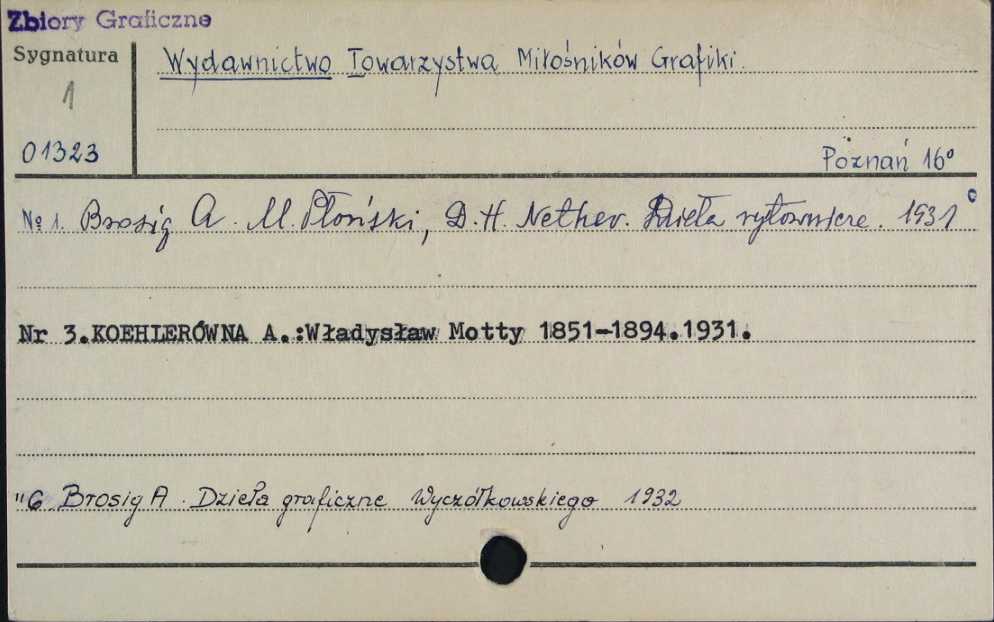 Zbiory Graficzne
Sygnatura
1
01323
Wydawnictwo Towarzystwa Miłośników Grafiki.
Poznań 16°
№ 1. Brosig A. M. Płoński, D. H. Nether. Dzieła rytownicze. 1931
Nr 3.KOEHLERÓWNA A.:Władysław Motty 1851-1894.1931.
"6 Brosig A. Dzieła graficzne Wyczółkowskiego 1932